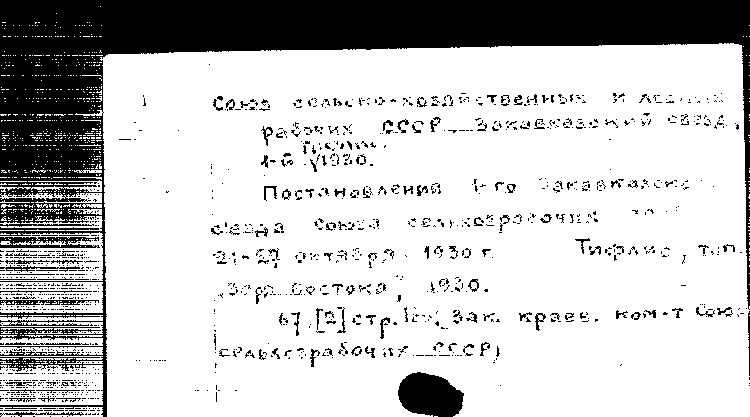 Союз сельско-хозяйственных и лесных
рабочих СССР. Закавказский съезд,
Тифлис.
1-й 1930.
Постановления 1-го Закавказско
съезда Союза сельхозрабочих
21-27 октября 1930 г. Тифлис, тип.
"Заря Востока", 1930.
67, [2] стр. Зак. краев. ком-т Союз
сельхозрабочих СССР)